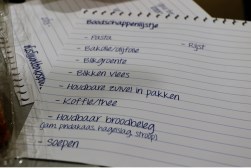 Boodschappenlijstje
- Pasta
- Rijst
- Bakolie/olijfolie
- Bakgroente
- Blikken vlees
- Houdbare zuivel in pakken
- Koffie/thee
- Houdbaar broodbeleg
(jam, pindakaas, hagelslag, stroop)
- Soepen